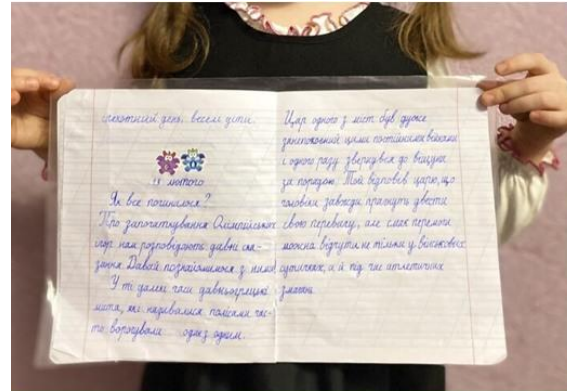 спекотний день, веселі діти.
18 лютого
Як все починалося?
Про започаткування Олімпійських
ігор нам розповідають давні ска-
зання. Давай познайомимося з ними
У ті далекі часи давньогрецькі
міста, які називалися полісами час-
то ворогували один з одним.
Цар одного з міст був дуже
занепокоєний цими постійними війнами
і одного разу звернувся до віщуна
за порадою. Той відповів царю, що
чоловіки завжди прагнуть довести
свою перевагу, але смак перемоги
можна відчути не тільки у військових
сутичках, а й під час атлетичних
змагань.